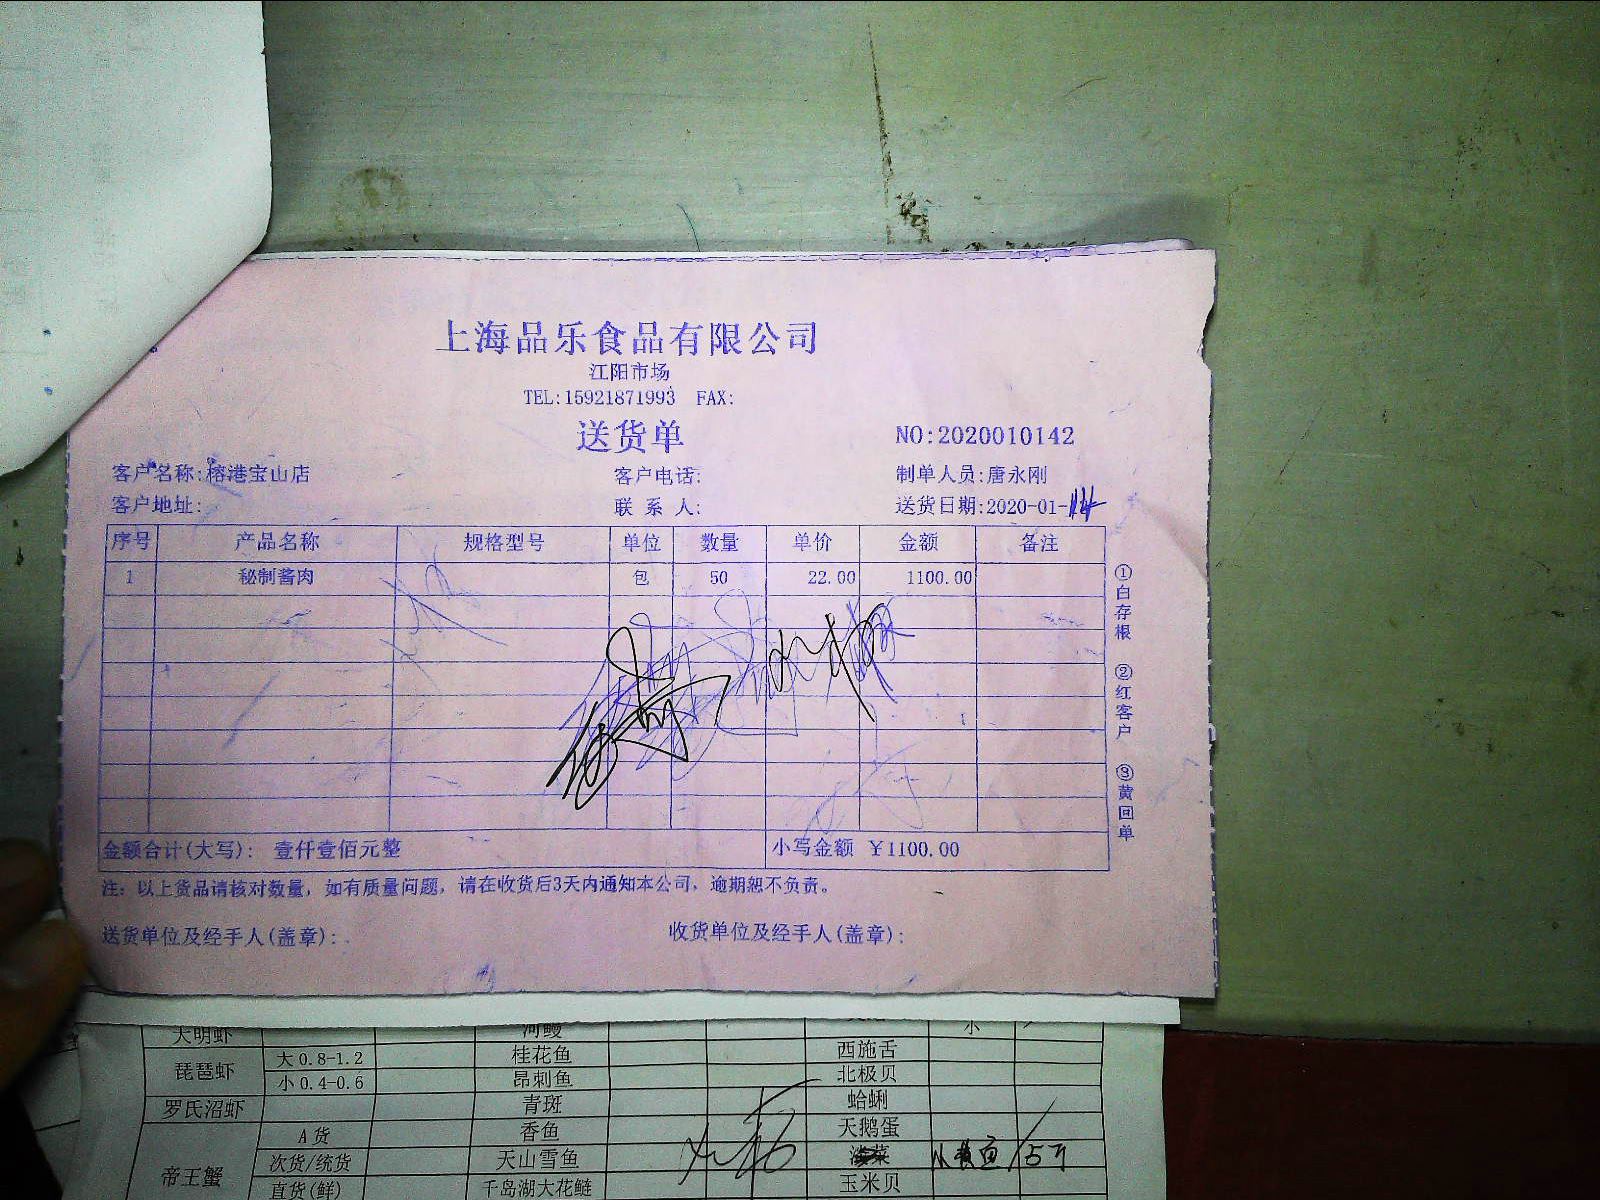 上海品乐食品有限公司
江阳市场
TEL:15921871993 FAX:
送货单
NO:2020010142
客户名称:榕港宝山店 客户电话: 制单人员:唐永刚
客户地址: 联系人: 送货日期:2020-01-
序号 产品名称 规格型号 单位 数量 单价 金额 备注
1 秘制酱肉 包 50 22.00 1100.00
金额合计(大写): 壹仟壹佰元整 小写金额 ¥1100.00
注: 以上货品请核对数量, 如有质量问题, 请在收货后3天内通知本公司, 逾期恕不负责。
送货单位及经手人(盖章): 收货单位及经手人(盖章):
①白存根 ②红客户 ③黄回单
大明虾 河鳗 小
琵琶虾 大0.8-1.2 桂花鱼 西施舌
小0.4-0.6 昂刺鱼 北极贝
罗氏沼虾 青斑 蛤蜊
帝王蟹 A货 香鱼 天鹅蛋
次货/统货 天山雪鱼
直货(鲜) 千岛湖大花鲢 玉米贝